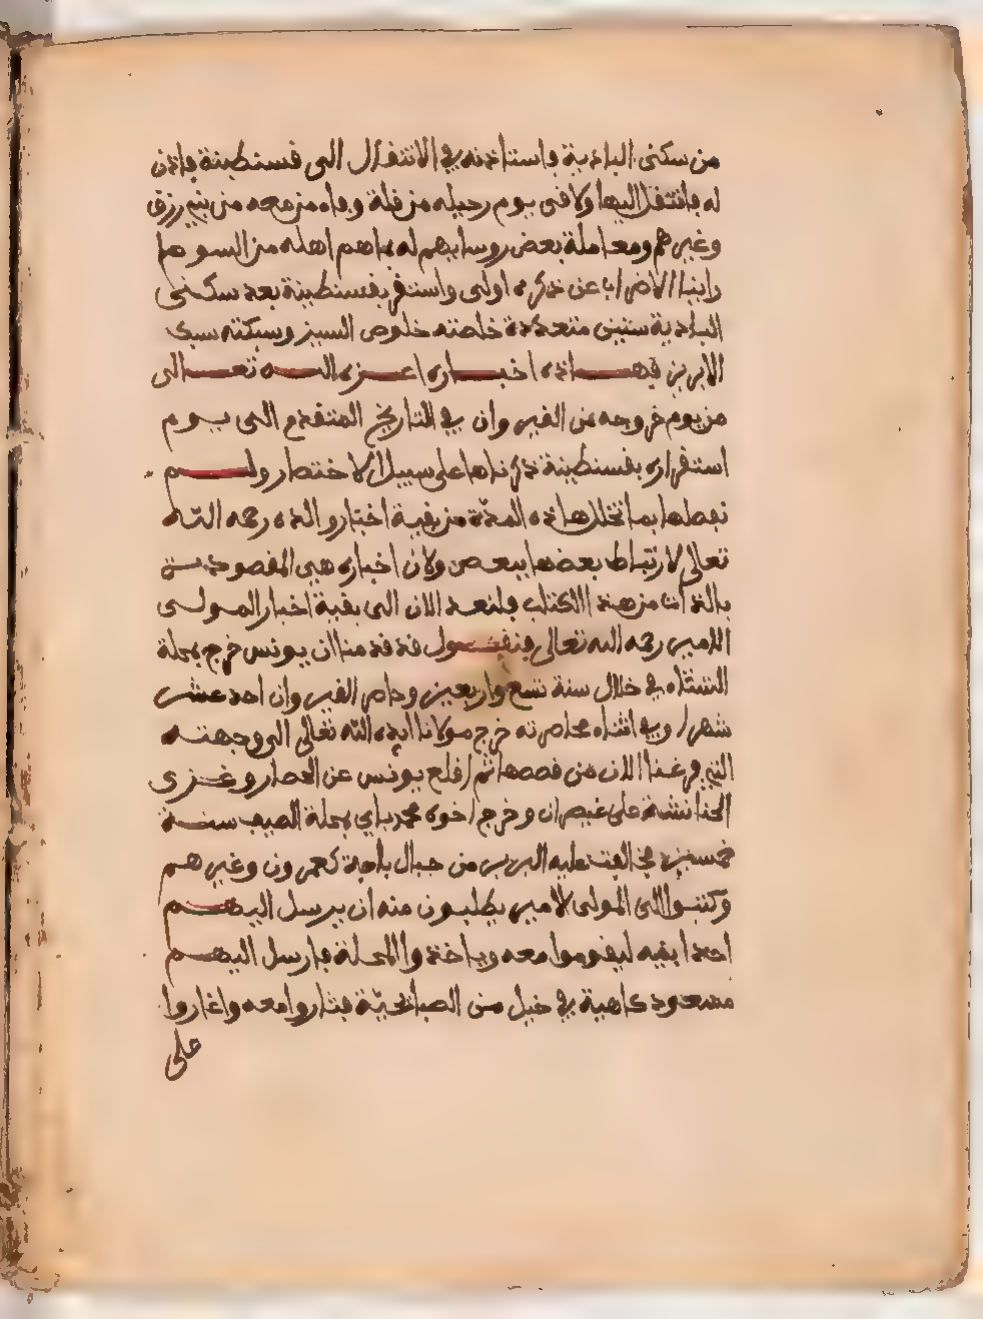 من سكنى البادية فاستاذنه في الانتقال الى قسنطينة فاذن
له فانتقل اليها ولاقى يوم رحيله من قلة وفاء من معه من بني رزق
وغيرهم ومعاملة بعض روسايهم له بما هم اهله من السوء ما
راينا الاضراب عن ذكره اولى واستقر بقسنطينة بعد سكنى
البادية سنين متعددة خلصته خلوص السبيز وسبكته سبك
الابريز فهــذه اخبــاره اعــزه اللــه تعــالى
من يوم خروجه من القيروان في التاريخ المتقدم الى يــوم
استقراره بقسنطينة ذكرناها على سبيل الاختصار ولــم
نفصلها بما تخلل هاذه المدة من بقية اخبار والده رحمه اللــه
تعالى لارتباط بعضها ببعض ولان اخباره هي المقصودة
بالذات من هذا الكتاب فلنعد الان الى بقية اخبار المولــى
الامير رحمه الله تعالى فنقــول قد قدمنا ان يونس خرج بمحلة
الشتاء في خلال سنة تسع واربعين وحاصر القيروان احد عشر
شهرا وفي اثناء محاصرته خرج مولانا ايده الله تعالى الى وجهتــه
التي فرغنا الان من قصصها ثم اقلع يونس عن الحصار وغــزى
الحنانشة على غيصران وخرج اخوه محمد باي بمحلة الصيف سنــة
خمسين فخالفت عليه البربر من جبال باجة كعمرون وغيرهــم
وكتبوا الى المولى الامير يطلبون منه ان يرسل اليهــم
احدا بقيه ليقوموا معه وياخذوا المحلة فارسل اليهــم
مسعود كاهية في خيل من الصبايحية فثاروا معه واغاروا
على